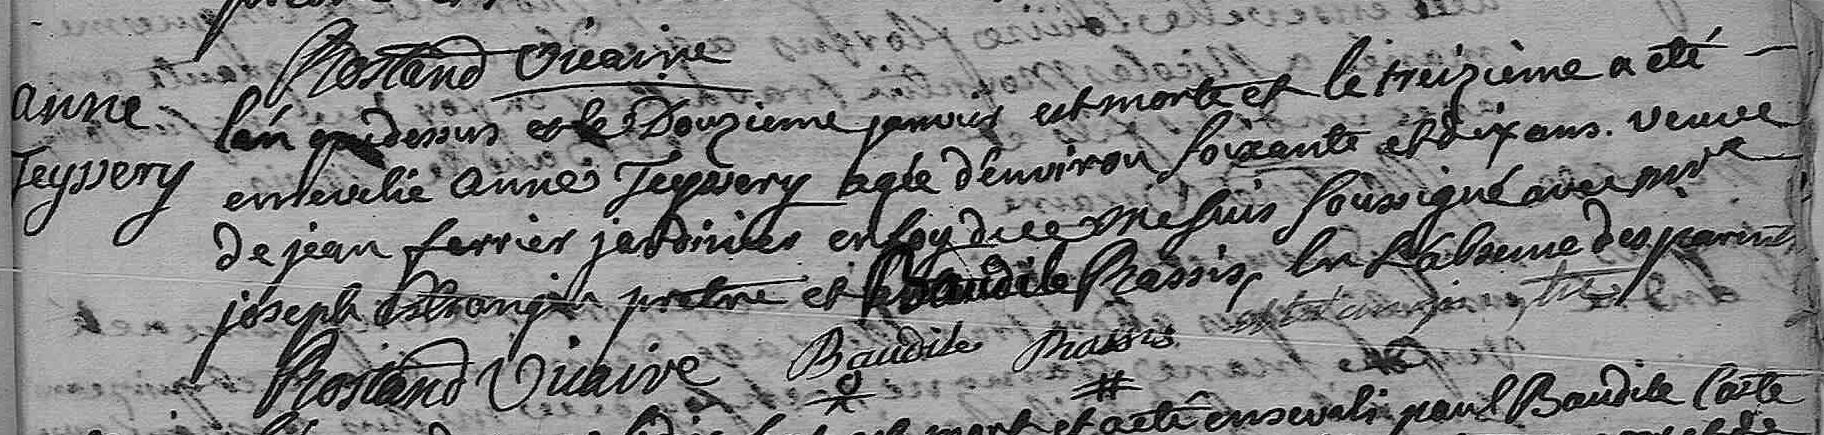 Rostand Vicaire
anne
Teyssery
l'an que dessus et le Douzieme janvier est morte et le treizieme a eté
ensevelie anne Teyssery agée d'environ soixante et dix ans. veuve
de jean ferrier jardinier en foy de ce me suis soussigné avec mre
joseph Estrangin pretre et Baudile Rassis, en l'absence des parins
Rostand Vicaire Baudile Rassis
mort et a eté enseveli paul Baudile Coste